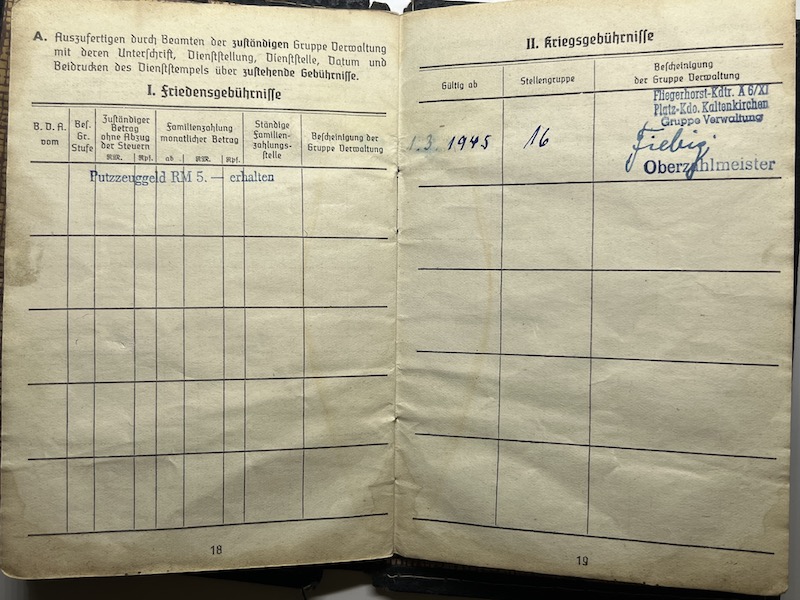 A. Auszufertigen durch Beamten der zuständigen Gruppe Verwaltung
mit deren Unterschrift, Dienststellung, Dienststelle, Datum und
Beidrucken des Dienststempels über zustehende Gebührnisse.
I. Friedensgebührnisse
B. D. A.
vom
Bes.
Gr.
Stufe
Zuständiger
Betrag
ohne Abzug
der Steuern
RM. Rpf.
Familienzahlung
monatlicher Betrag
ab RM. Rpf.
Ständige
Familien-
zahlungs-
stelle
Bescheinigung der
Gruppe Verwaltung
Putzzeuggeld RM 5. — erhalten
18
II. Kriegsgebührnisse
Gültig ab
Stellengruppe
Bescheinigung
der Gruppe Verwaltung
1.3. 1945
16
Fliegerhorst-Kdtr. A 6/XI
Platz-Kdo. Kaltenkirchen
Gruppe Verwaltung
Fiebig
Oberzahlmeister
19